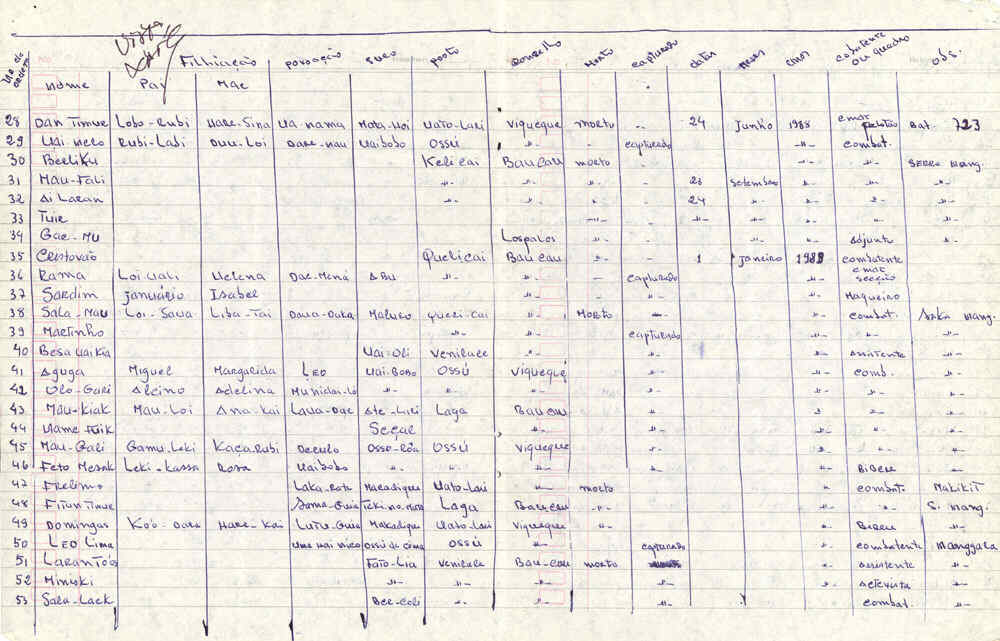 Nº de ordem Filhiação povoação suco posto Conselho Morto capturado datas meses anos cobatente ou quadro obs.
nome Pay Mãe
28 Dan Timur Lobo-Rubi Hare-Sina Ua-nama Mata-Hoi Uato-Lari Viqueque morto -- - 24 Junho 1988 cmdr Pelotão Bat. 723
29 Uai-neco Rubi-Labi Duu-Loi Dare-nau Uaibobo Ossú capturado combat.
30 Berliku Kelicai Baucau morto -- - - "- "- Serra Mang.
31 Mau-Fali "- "- "- - 23 setembro "- "- "-
32 Ai Laran "- "- "- - 24 " "- "- "-
33 Tuir "- "- "- "- "- "-
34 Gae-Mu Lospalos "- - "- "- Adjunto "-
35 Cristovão Quelicai Baucau "- -- 1 Janeiro 1989 combatente
36 Rama Loi uaki Helena Dae-Mena Abu "- "- capturado "- cmdr secção
37 Sardim Januário Isabel "- "- - "- Maqueiro
38 Sala-Mau Loi-Saua Liba-Tai Daua-Daka Maluro Queli-cai "- Morto "- combat. Mang.
39 Martinho "- "- capturado "- "- "-
40 Besa Uaikia Uai-Oli Venilale "- "- "- Assistente "-
41 Aguga Miguel Margarida Leo Uai-Bobo Ossú Viqueque "- "- comb. "-
42 Olo-Gari Alcino Adelina Munidas-lo "- "- "- "- "- "- "-
43 Mau-kiak Mau-Loi Ana-kai Laua-Dae Ate-Lari Laga Baucau "- "- "- "-
44 Mame Fuik Seçal "- "- "- "- "- "-
45 Mau-Gali Gamu-Leki Kaça Rubi Deculo Osso-Rôa Ossú Viqueque "- "- "- "-
46 Feto Mesak Leki-kassa Rosa Uaibobo "- "- "- "- "- Bideru "-
47 Frelimo Laka-Rote Macadique Uato-Lari "- morto "- combat. Makikit
48 Fitun Timur Soma-Guia Laga Baucau "- "- "- S. Mang.
49 Domingas Koo-Dare Hare-kai Lutu-Guia Makadique Uato-Lari Viqueque "- "- Bideru "-
50 Leo Lima Uma Uai nico Ossú de cima Ossú "- capturado "- combatente Manggara
51 Larantos Fato-Lia Venilale Bau-cau morto "- Assistente "-
52 Minoki "- "- "- "- "- "- Activista "-
53 Sala-Lack Ber-coli "- "- "- "- "- combat. "-